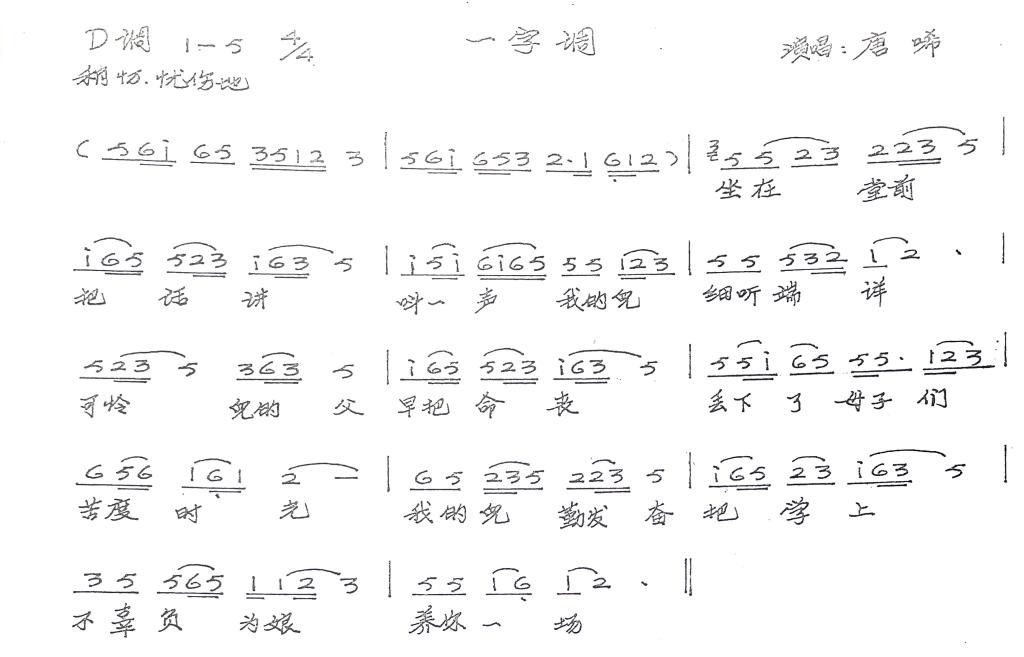 D调 1—5 4/4 一字调 演唱：唐 唏
稍切.忧伤地
( 5 6 i 6 5 3 5 1 2 3 | 5 6 i 6 5 3 2 · 1 6 1 2 ) | 3 5 5 2 3 2 2 3 5 |
坐在 堂前
i 6 5 5 2 3 i 6 3 5 | i 5 i 6 i 6 5 5 5 i 2 3 | 5 5 5 3 2 1 2 · |
把 话 讲 叫一 声 我的儿 细听端 详
5 2 3 5 3 6 3 5 | i 6 5 5 2 3 i 6 3 5 | 5 5 i 6 5 5 5 · 1 2 3 |
可怜 儿的 父 早把 命 丧 丢下 了 母子 们
6 5 6 1 6 1 2 — | 6 5 2 3 5 2 2 3 5 | i 6 5 2 3 i 6 3 5 |
苦度 时 光 我的儿 勤发 奋 把 学 上
3 5 5 6 5 1 1 2 3 | 5 5 1 6 1 2 · ‖
不辜 负 为娘 养你 一 场